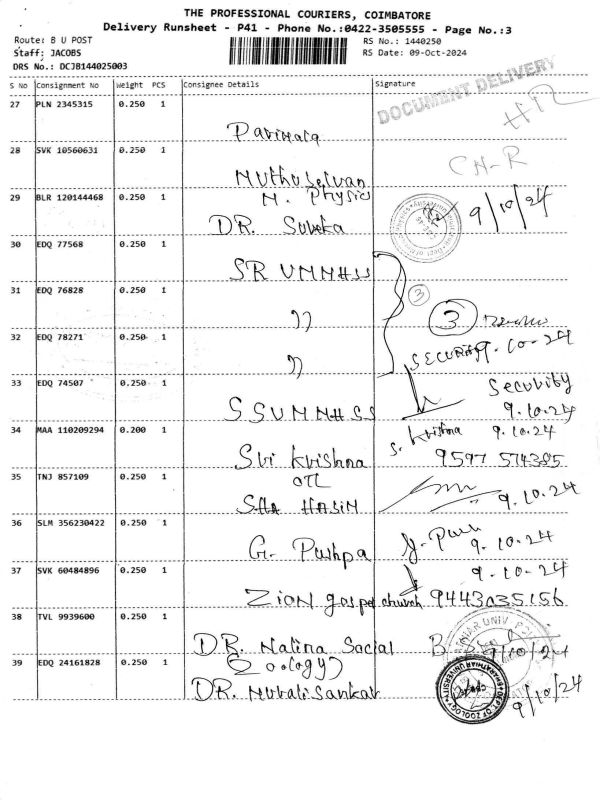 THE PROFESSIONAL COURIERS, COIMBATORE
Delivery Runsheet - P41 - Phone No.:0422-3505555 - Page No.:3
Route: B U POST
RS No.: 1440250
Staff: JACOBS
RS Date: 09-Oct-2024
DRS No.: DCJB144025003
S No Consignment No Weight PCS Consignee Details Signature
DOCUMENT DELIVERY
27 PLN 2345315 0.250 1
Parimala
28 SVK 10560631 0.250 1 CH-R
Muthuselvan
29 BLR 120144468 0.250 1 M. Physics
DR. Suveka 9/10/24
30 EDQ 77568 0.250 1
SR VMMHSS
31 EDQ 76828 0.250 1 3
〃 3
32 EDQ 78271 0.250 1
〃 SECURITY 9.10-24
33 EDQ 74507 0.250 1 Security
SSVMMHSS 9.10.24
34 MAA 110209294 0.200 1 S. Krishna 9.10.24
Sri Krishna 9597 574385
35 TNJ 857109 0.250 1 OTL
SHA HASIN 9.10.24
36 SLM 356230422 0.250 1
G. Pushpa 9.10.24
37 SVK 60484896 0.250 1 9.10.24
Zion gospel church 9443035156
38 TVL 9939600 0.250 1
DR. Nalina Social 9/10/24
39 EDQ 24161828 0.250 1 Zoology
DR. Muralisankar 9/10/24
BHARATHIAR UNIVERSITY
DEPT. OF ZOOLOGY